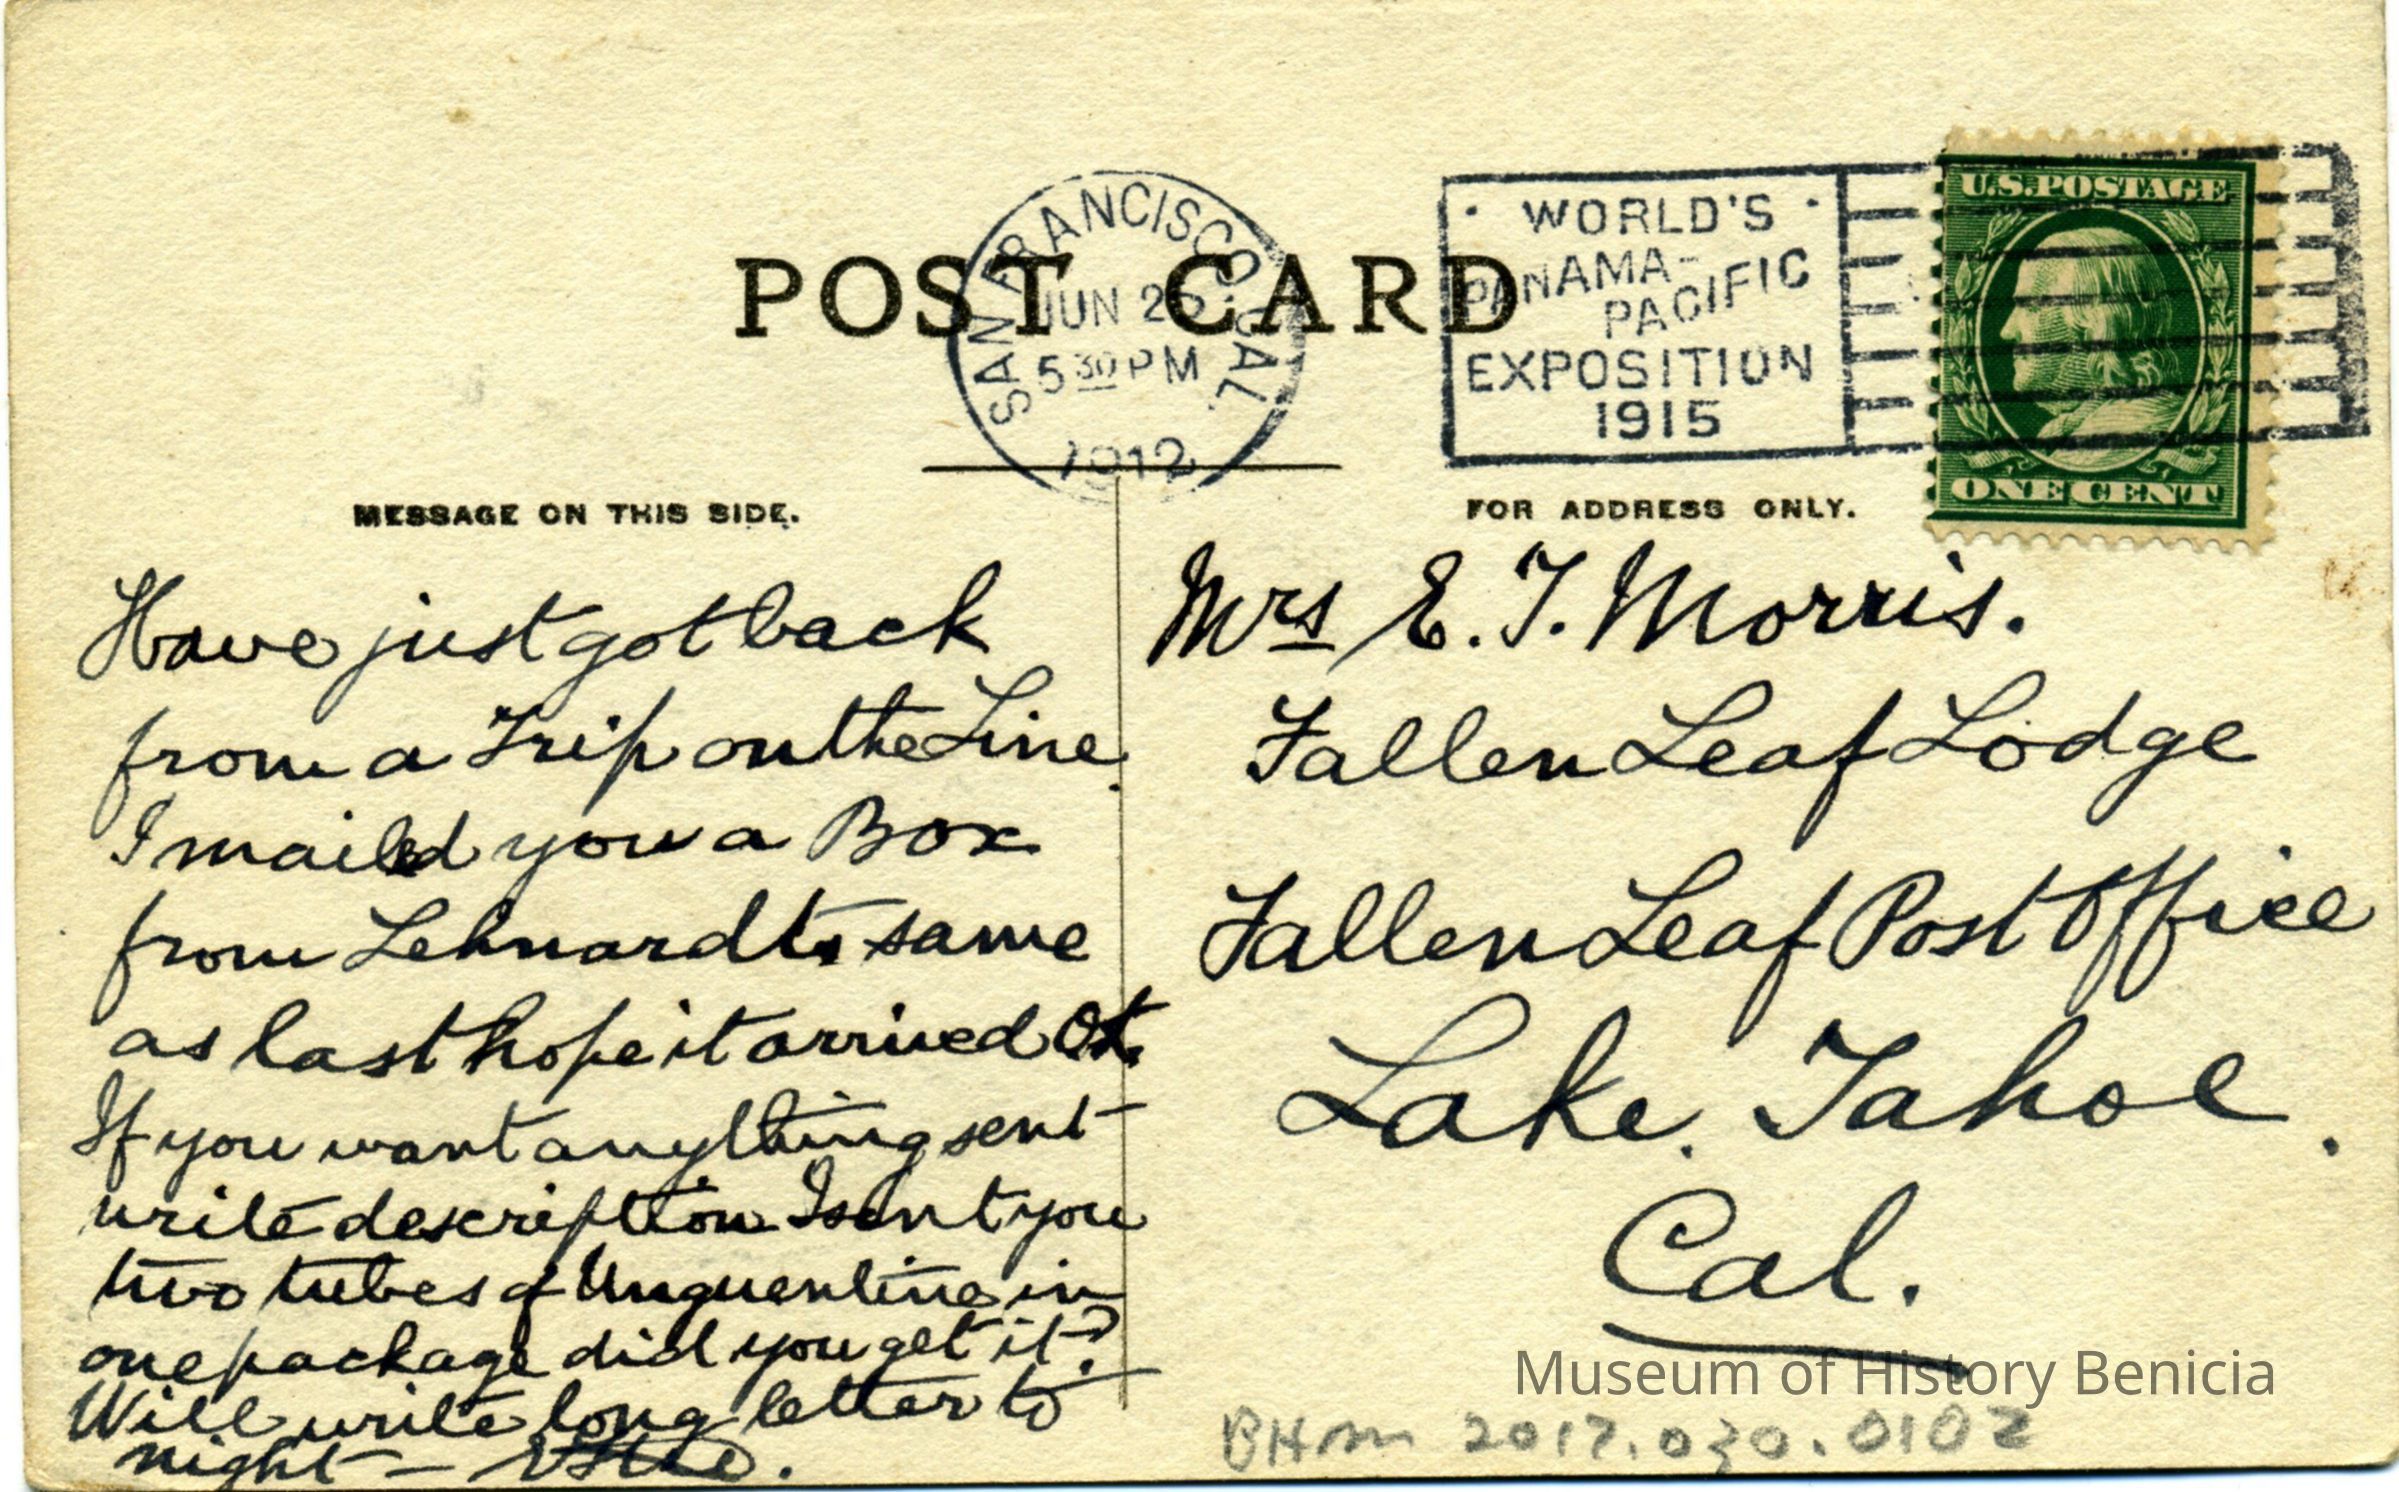 POST CARD
SAN FRANCISCO, CAL.
JUN 25
5 30 PM
1912
WORLD'S
PANAMA-
PACIFIC
EXPOSITION
1915
U.S. POSTAGE
ONE CENT
MESSAGE ON THIS SIDE.
Have just got back
from a Trip on the Line.
I mailed you a Box
from Lehnardts same
as last hope it arrived
If you want anything sent
write description I sent you
two tubes of Unguentine in
one package did you get it?
Will write long letter to
night —
FOR ADDRESS ONLY.
Mrs E. T. Morris.
Fallen Leaf Lodge
Fallen Leaf Post Office
Lake Tahoe.
Cal.
Museum of History Benicia
BHM 2017.030.0102